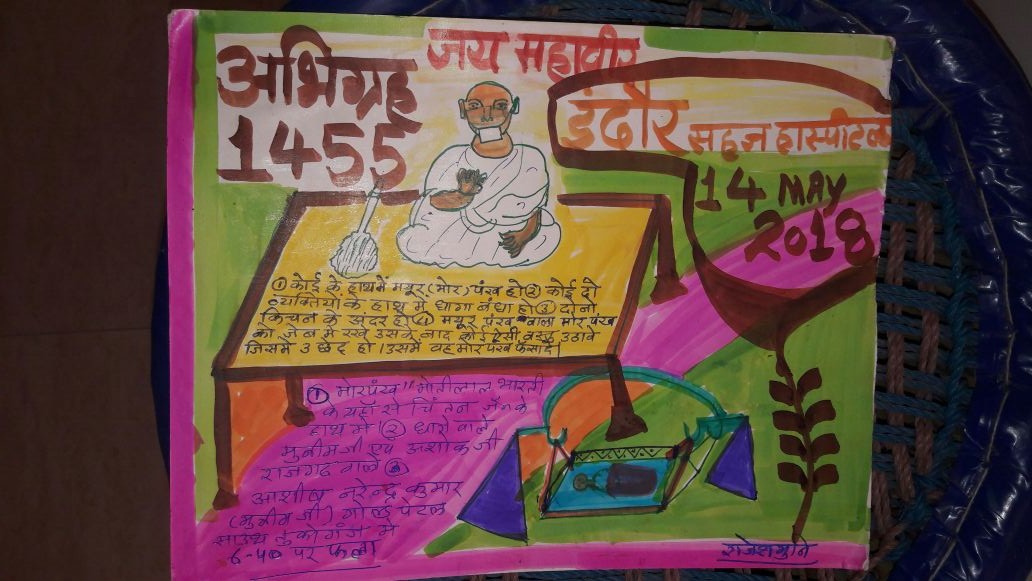 जय महावीर
अभिग्रह
1455
इंदौर सहज हास्पीटल
14 MAY
2018
① कोई के हाथ में मयूर (मोर) पंख हो ② कोई दो
व्यक्तियों के हाथ में धागा बंधा हो ③ दोनो
किचन के अंदर हो ④ मयूर पंख वाला मोर पंख
को जेब में रखे उसके बाद कोई ऐसी वस्तु उठावे
जिसमें 3 छेद हो । उसमें वह मोर पंख फसादे
① मोरपंख" मोतीलाल भारती
के यहाँ से चिंतन जैन के
हाथ में ② धागे वाले
मुनीमजी एवं अशोक जी
राजगढ वाले ③
आशीष नरेन्द्र कुमार
(मुनीम जी) गोलु पटेल
साउथ तुकोगंज में
6-40 पर फला
राजेशमुनि